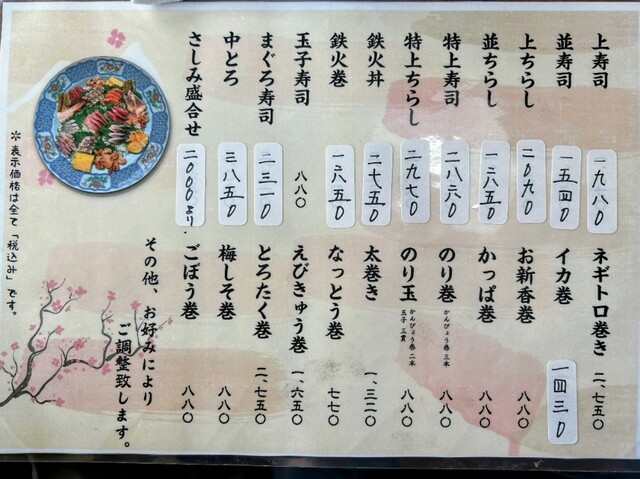 上寿司 一九八〇
並寿司 一五四〇
上ちらし 二〇九〇
並ちらし 一六五〇
特上寿司 二八六〇
特上ちらし 二九七〇
鉄火丼 二七五〇
鉄火巻 一八五〇
玉子寿司 八八〇
まぐろ寿司 二三一〇
中とろ 三八五〇
さしみ盛合せ 二〇〇〇より
ネギトロ巻き 二、七五〇
イカ巻 一四三〇
お新香巻 八八〇
かっぱ巻 八八〇
のり巻 かんぴょう巻 三本 八八〇
のり玉 かんぴょう巻 二本 玉子 三貫 八八〇
太巻き 一、三二〇
なっとう巻 七七〇
えびきゅう巻 一、六五〇
とろたく巻 二、七五〇
梅しそ巻 八八〇
ごぼう巻 八八〇
その他、お好みにより
ご調整致します。
※表示価格は全て「税込み」です。